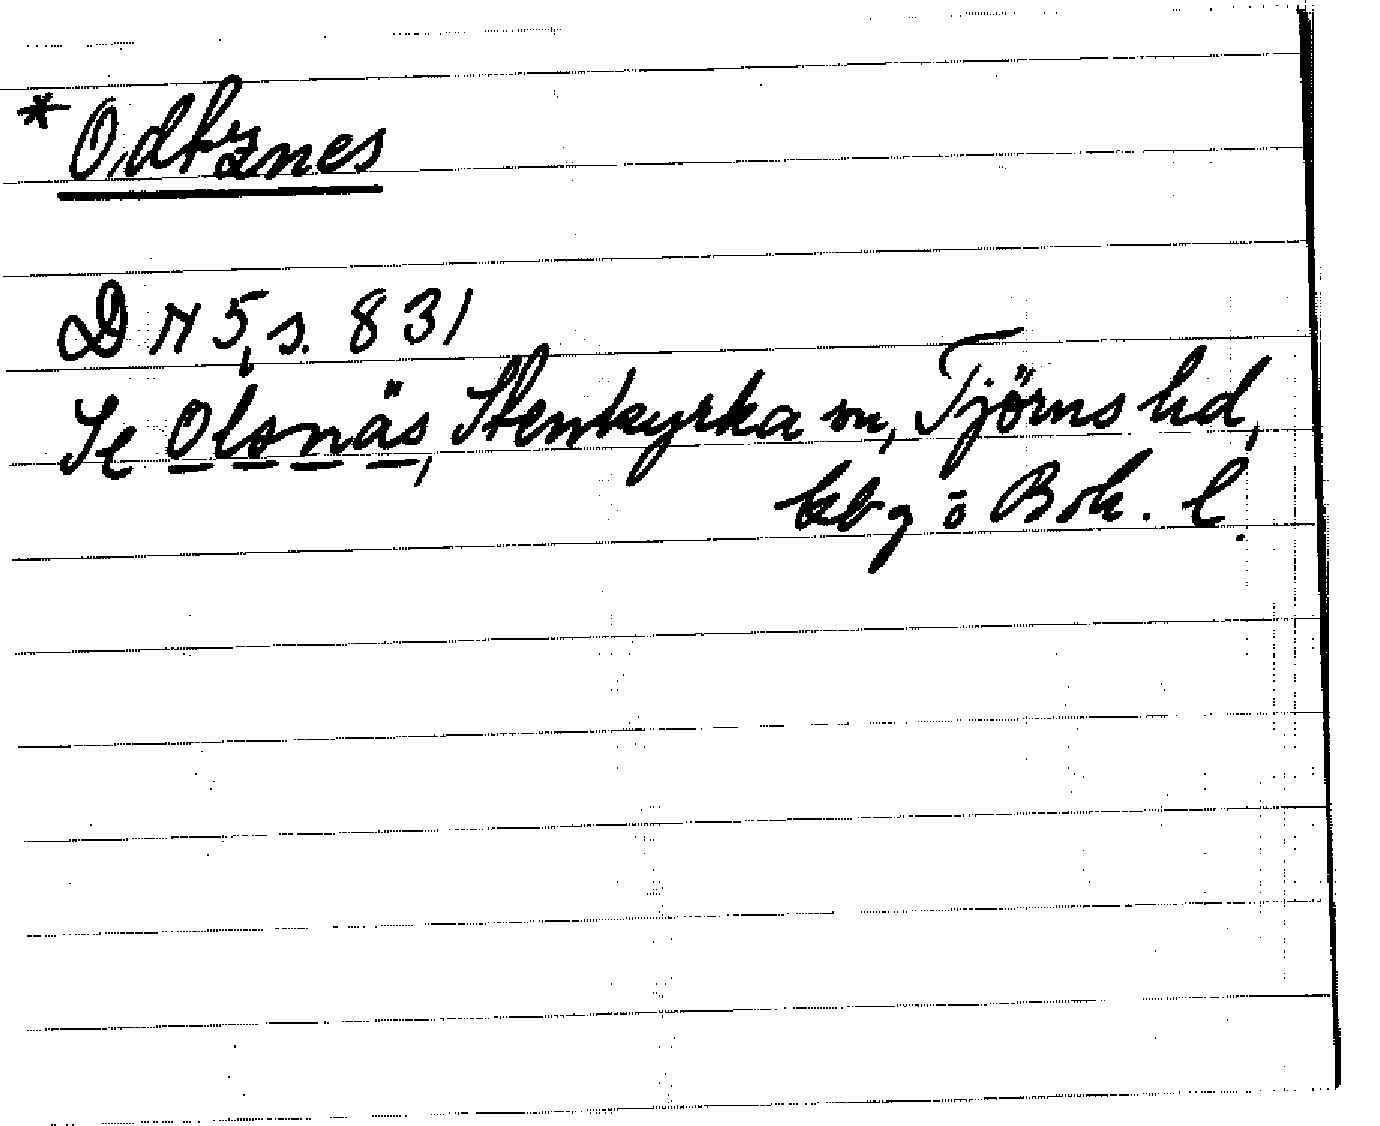 * Odtznes
DN 5, s. 831
Se Olsnäs, Stenkyrka sn, Tjörns hd,
Boh. l.